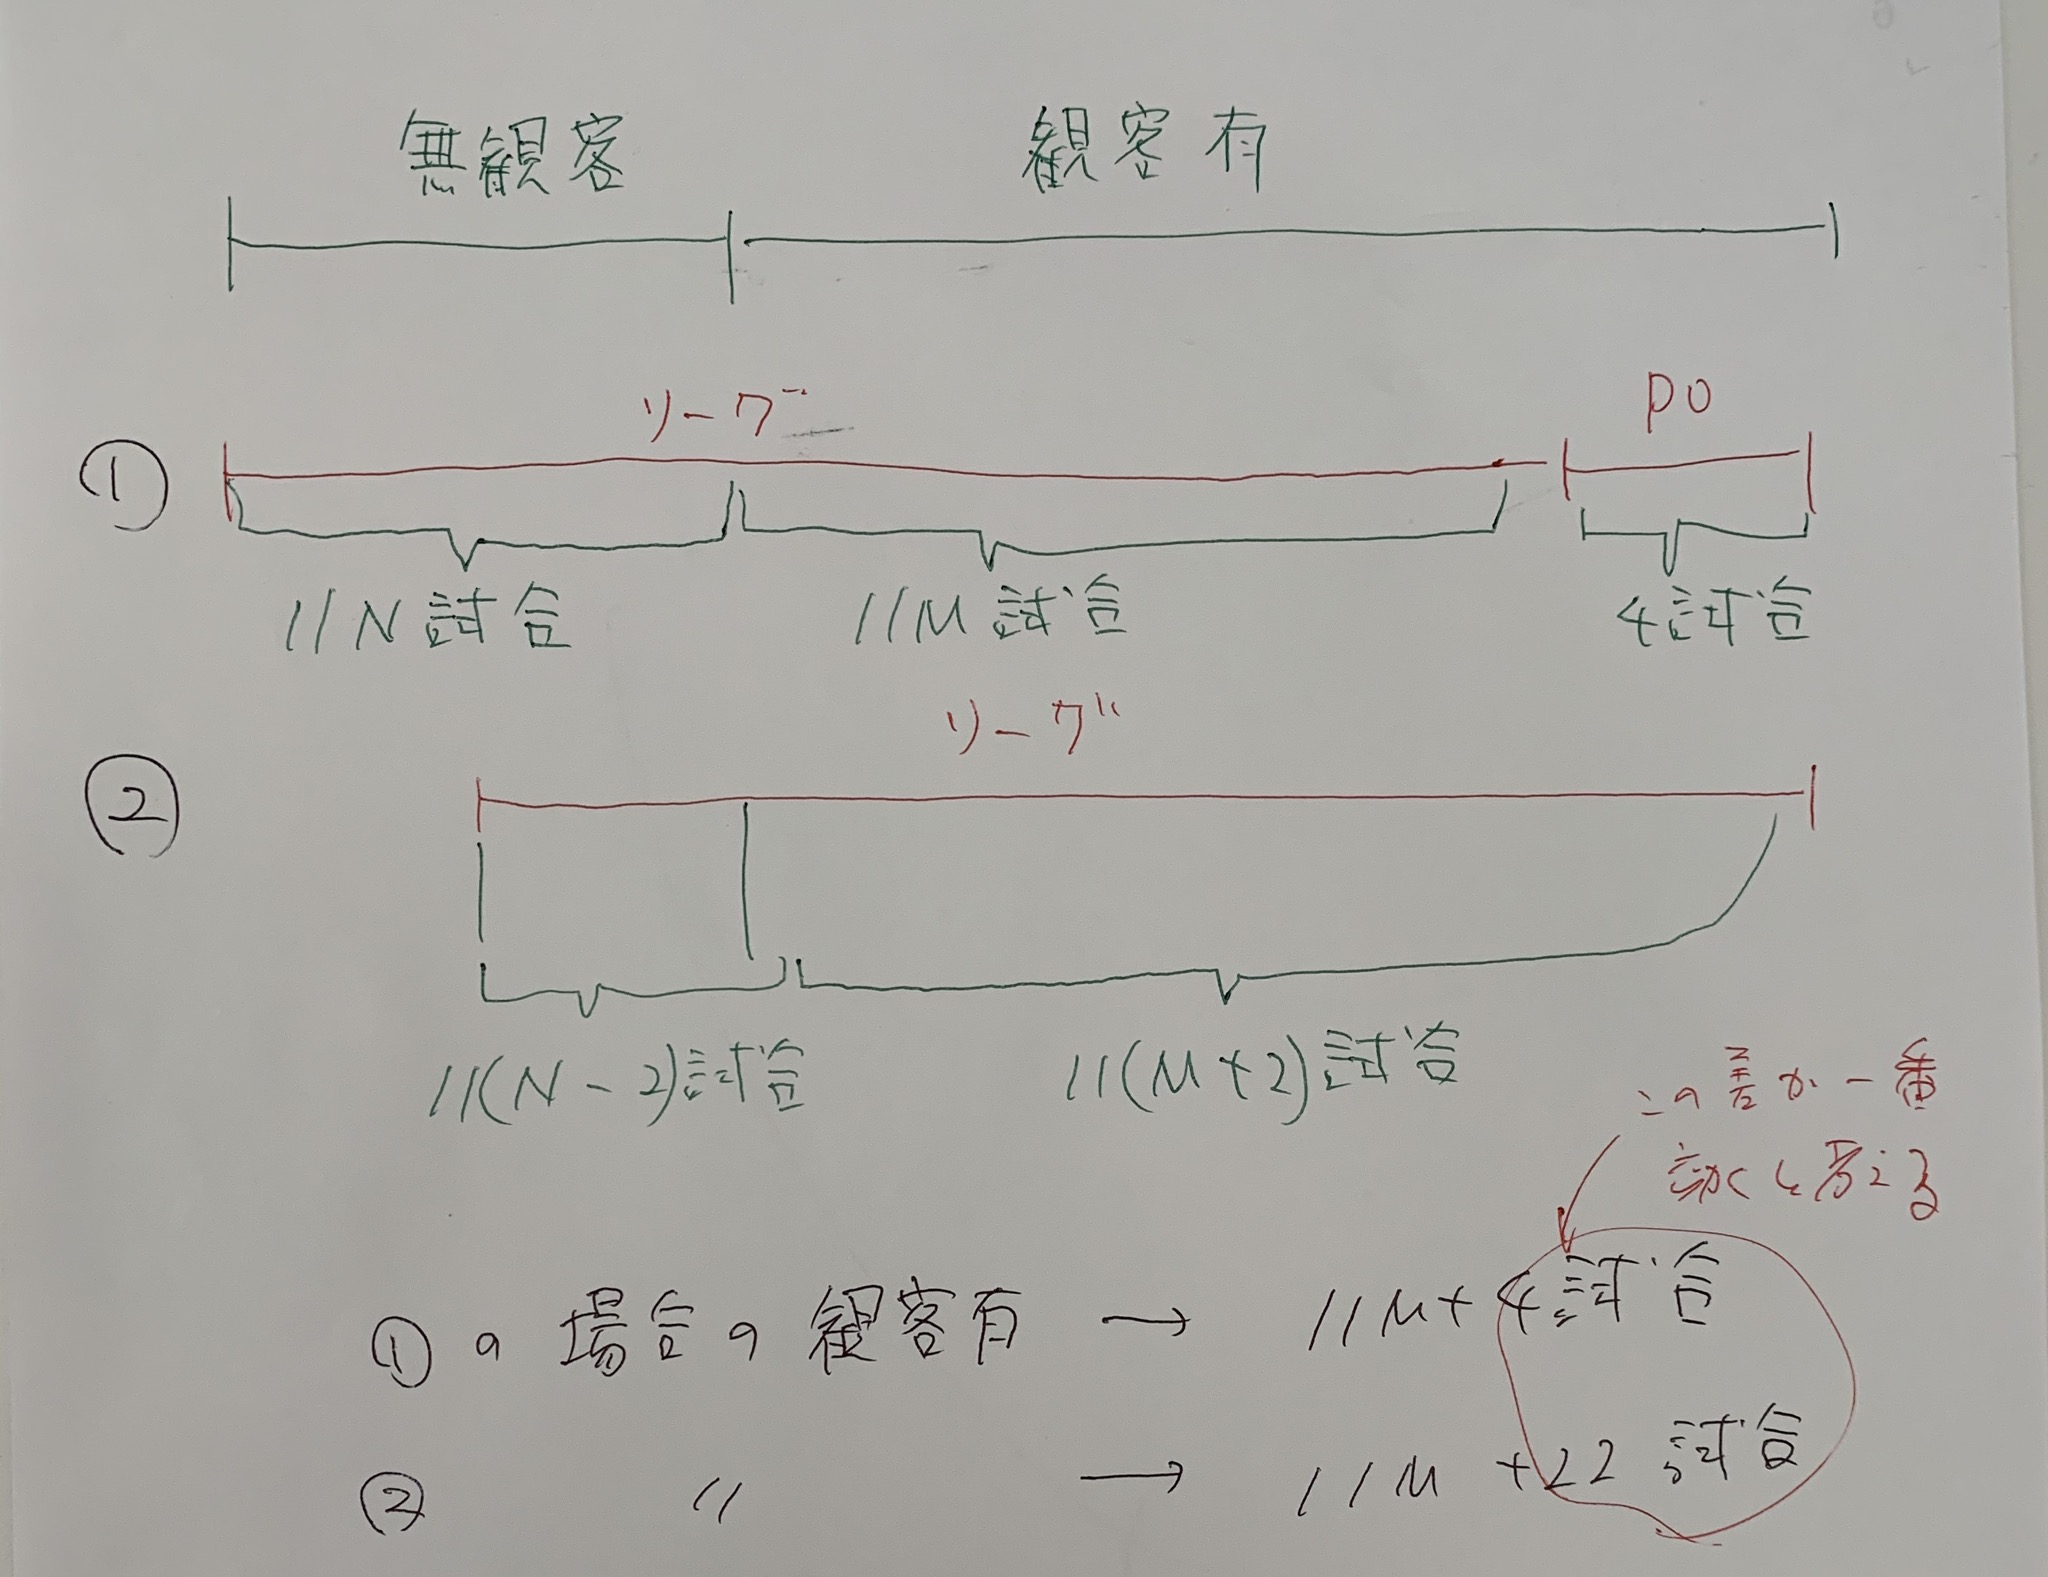 無観客 観客有
リーグ PO
①
11N試合 11M試合 4試合
リーグ
②
11(N-2)試合 11(M+2)試合
この差が一番
効くと考える
①の場合の観客有 → 11M+4試合
② 〃 → 11M+22試合